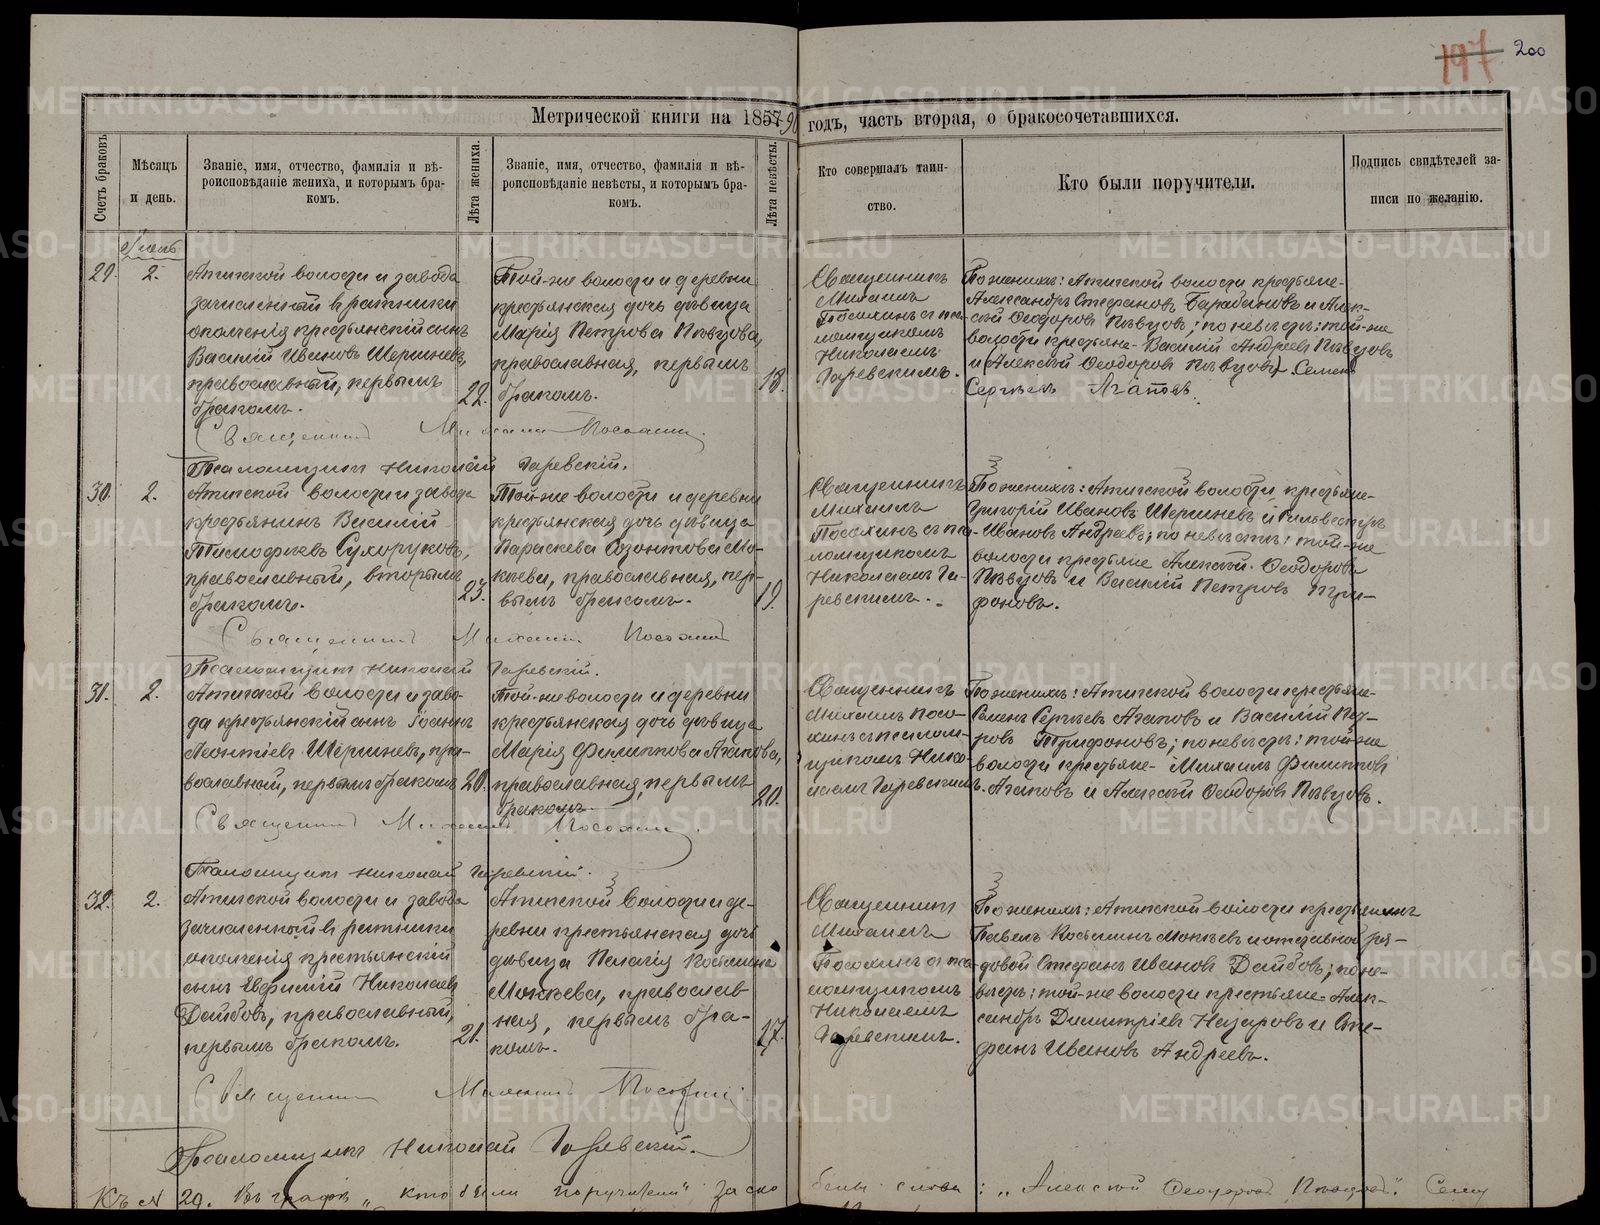 197 200
Метрической книги на 1857 годъ, часть вторая, о бракосочетавшихся.
Счетъ браковъ.
Мѣсяцъ
и день.
Званіе, имя, отчество, фамилія и вѣ-
роисповѣданіе жениха, и которымъ бра-
комъ.
Лѣта жениха.
Званіе, имя, отчество, фамилія и вѣ-
роисповѣданіе невѣсты, и которымъ бра-
комъ.
Лѣта невѣсты.
Кто совершалъ таин-
ство.
Кто были поручители.
Подпись свидѣтелей за-
писи по желанію.
29.
2.
Атигской волости и завода
зачисленный в ратники
ополченія крестьянскій сынъ
Василій Ивановъ Шершневъ,
православный, первымъ
бракомъ.
22.
Той-же волости и деревни
крестьянская дочь дѣвица
Марія Петрова Пѣвцова,
православная, первымъ
бракомъ.
18.
Священникъ
Михаилъ
Посохинъ съ пса-
ломщикомъ
Николаемъ
Гаревскимъ.
По женихѣ: Атигской волости крестьяне-
Александръ Стефановъ Барабановъ и Алек-
сѣй Ѳеодоровъ Пѣвцовъ; по невѣстѣ: той-же
волости крестьяне- Василій Андреевъ Пѣвцовъ
и (Алексѣй Ѳеодоровъ Пѣвцовъ) Семенъ
Сергѣевъ Агаповъ.
Священникъ Михаилъ Посохинъ.
Псаломщикъ Николай Гаревскій.
30.
2.
Атигской волости и завода
крестьянинъ Василій
Тимофеевъ Сухоруковъ,
православный, вторымъ
бракомъ.
23.
Той-же волости и деревни
крестьянская дочь дѣвица
Параскева Мо-
кѣева, православная, пер-
вымъ бракомъ.
19.
Священникъ
Михаилъ
Посохинъ съ пса-
ломщикомъ
Николаемъ Га-
ревскимъ.
По женихѣ: Атигской волости, крестьяне-
Григорій Ивановъ Шершневъ и Сильвестръ
Ивановъ Андреевъ; по невѣстѣ: той-же
волости крестьяне Алексѣй Ѳеодоровъ
Пѣвцовъ и Василій Петровъ Три-
фоновъ.
Священникъ Михаилъ Посохинъ
Псаломщикъ Николай Гаревскій.
31.
2.
Атигской волости и заво-
да крестьянскій сынъ Іоаннъ
Леонтіевъ Шершневъ, пра-
вославный, первымъ бракомъ
20.
Той-же волости и деревни
крестьянская дочь дѣвица
Марія Филиппова Агапова,
православная, первымъ
бракомъ.
20.
Священникъ
Михаилъ Посо-
хинъ съ псалом-
щикомъ Нико-
лаемъ Гаревскимъ.
По женихѣ: Атигской волости крестьяне-
Семенъ Сергѣевъ Агаповъ и Василій Пет-
ровъ Трифоновъ; по невѣстѣ: той-же
волости крестьяне- Михаилъ Филипповъ
Агаповъ и Алексѣй Ѳеодоровъ Пѣвцовъ.
Священникъ Михаилъ Посохинъ.
Псаломщикъ Николай Гаревскій.
32.
2.
Атигской волости и завода
зачисленный в ратники
ополченія крестьянскій
сынъ Евфимій Николаевъ
Даибовъ, православный,
первымъ бракомъ.
21.
Атигской волости и де-
ревни крестьянская дочь
дѣвица Пелагія Косьмина
Мокѣева, православ-
ная, первымъ бра-
комъ.
17.
Священникъ
Михаилъ
Посохинъ съ пса-
ломщикомъ
Николаемъ
Гаревскимъ.
По женихѣ: Атигской волости крестьянинъ
Павелъ Косьминъ Мокѣевъ и отставной ря-
довой Стефанъ Ивановъ Даибовъ; по не-
вѣстѣ: той-же волости крестьяне- Алек-
сандръ Димитріевъ Назаровъ и Сте-
фанъ Ивановъ Андреевъ.
Священникъ Михаилъ Посохинъ.
Псаломщикъ Николай Гаревскій.
Къ № 29. Въ графѣ "кто были поручители" слова: "Алексѣй Ѳеодоровъ Пѣвцовъ"